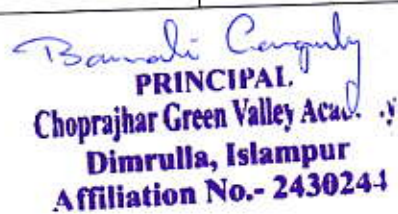 Banali Ganguly
PRINCIPAL
Choprajhar Green Valley Acad y
Dimrulla, Islampur
Affiliation No.- 2430244